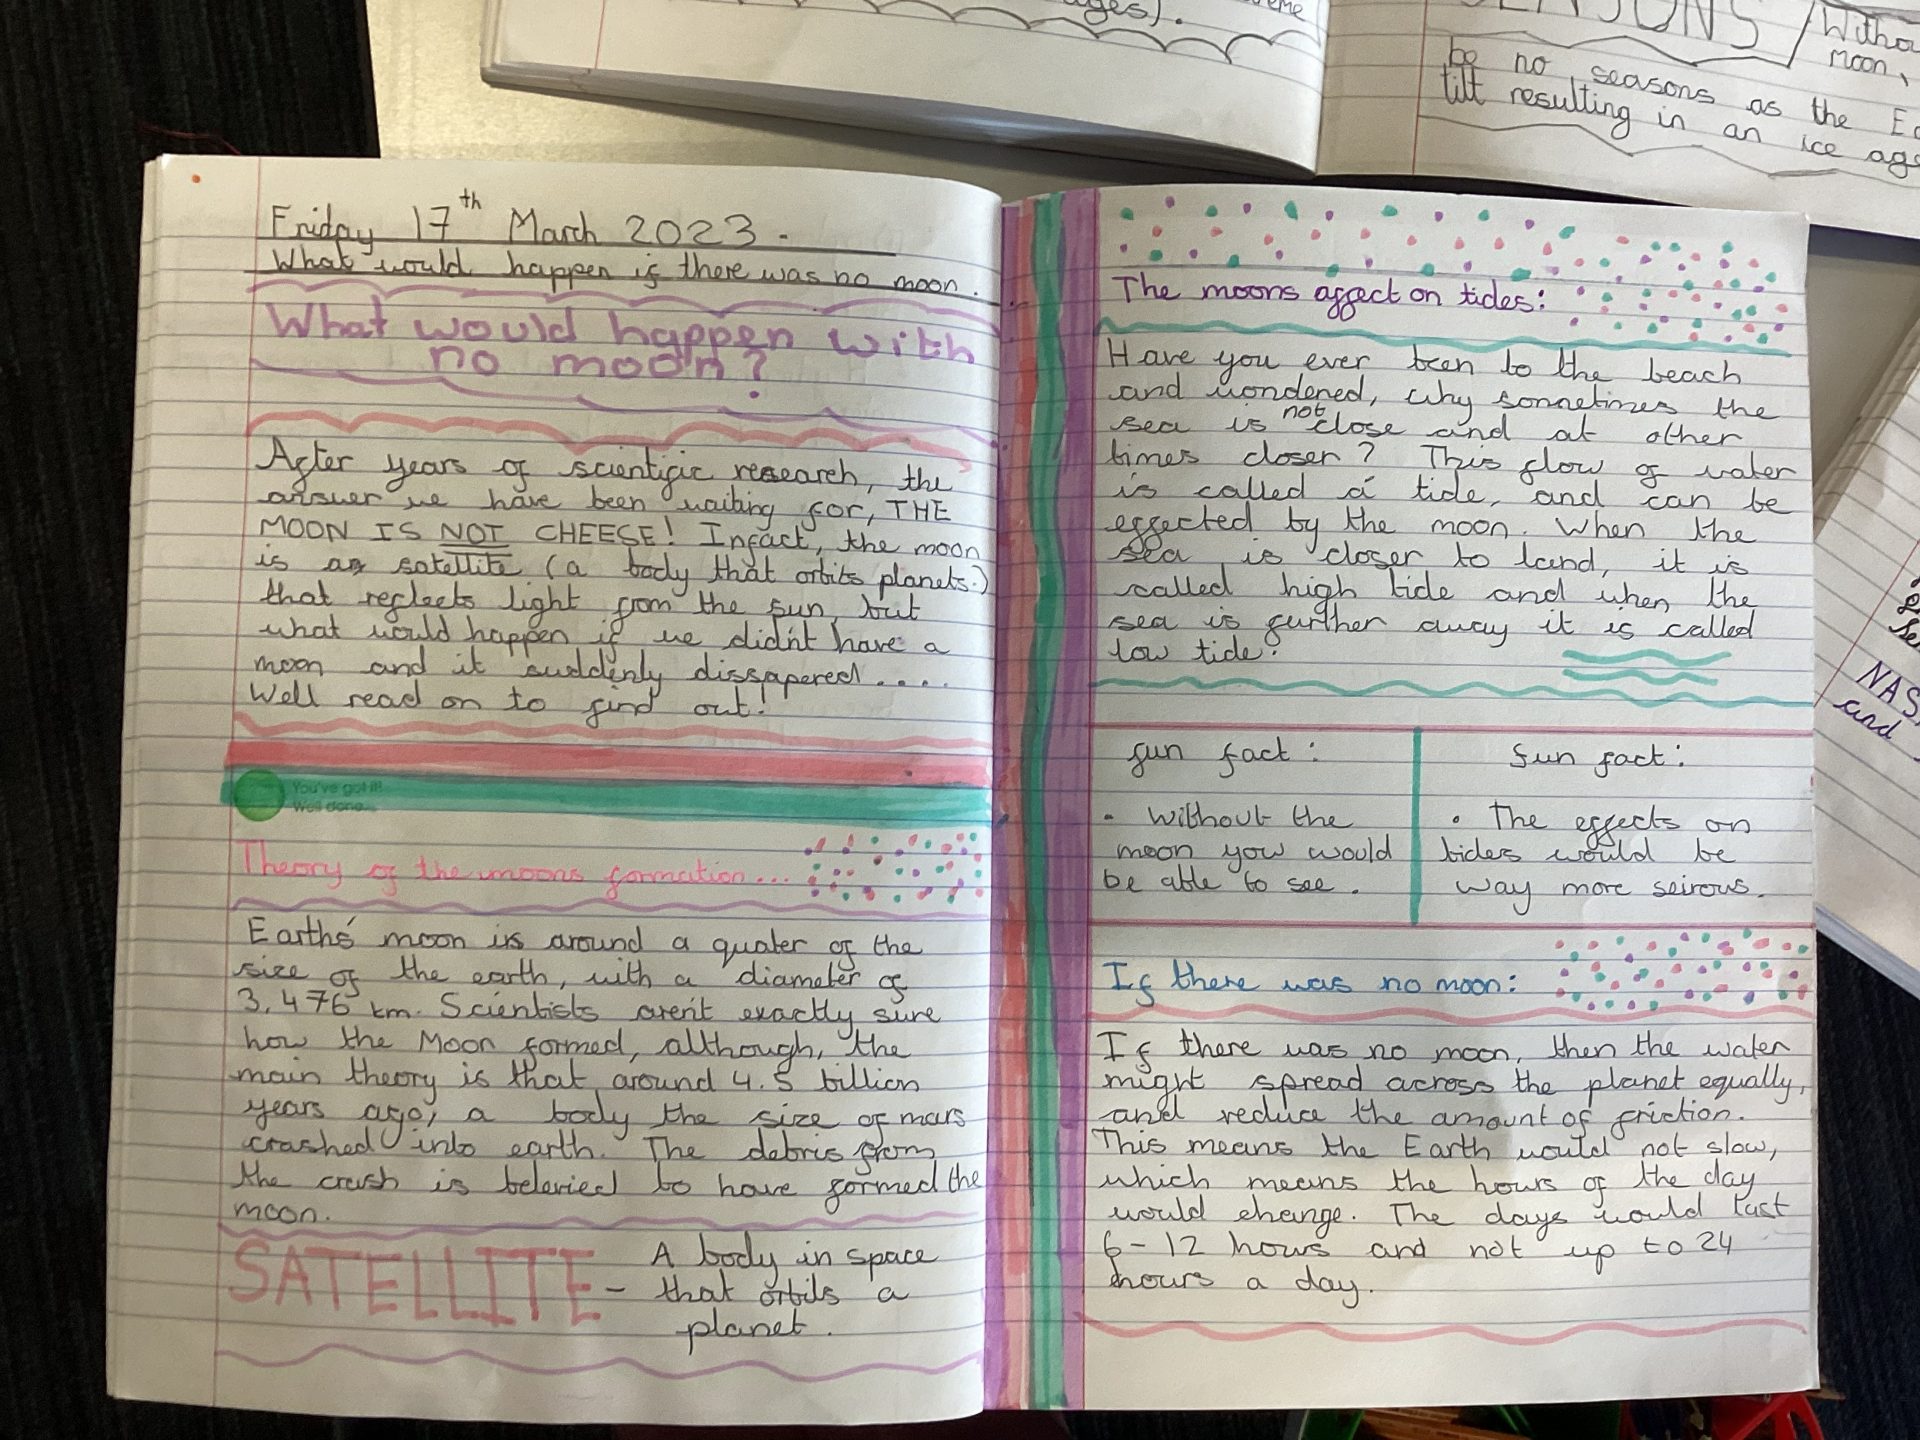 ges).
SEASONS
be no seasons as the
tilt resulting in an ice
moon,
Friday 17th March 2023.
What would happen if there was no moon.
What would happen with
no moon?
After years of scientific research, the
answer we have been waiting for, THE
MOON IS NOT CHEESE! Infact, the moon
is a satellite (a body that orbits planets.)
that reflects light from the sun, but
what would happen if we didn't have a
moon and it suddenly dissapered....
Well read on to find out!
You've got it!
Well done...
Theory of the moons formation...
Earths' moon is around a quater of the
size of the earth, with a diameter of
3,476 km. Scientists aren't exactly sure
how the Moon formed, although, the
main theory is that around 4.5 billion
years ago, a body the size of mars
crashed into earth. The debris from
the crash is beleried to have formed the
moon.
SATELLITE - A body in space
that orbits a
planet.
The moons affect on tides:
Have you ever been to the beach
and wondered, why sometimes the
sea is not close and at other
times closer? This flow of water
is called a tide, and can be
effected by the moon. When the
sea is closer to land, it is
called high tide and when the
sea is further away it is called
low tide.
fun fact:
• Without the
moon you would
be able to see.
fun fact:
• The effects on
tides would be
way more seirous.
If there was no moon:
If there was no moon, then the water
might spread across the planet equally,
and reduce the amount of friction.
This means the Earth would not slow,
which means the hours of the day
would change. The days would last
6-12 hours and not up to 24
hours a day.
and